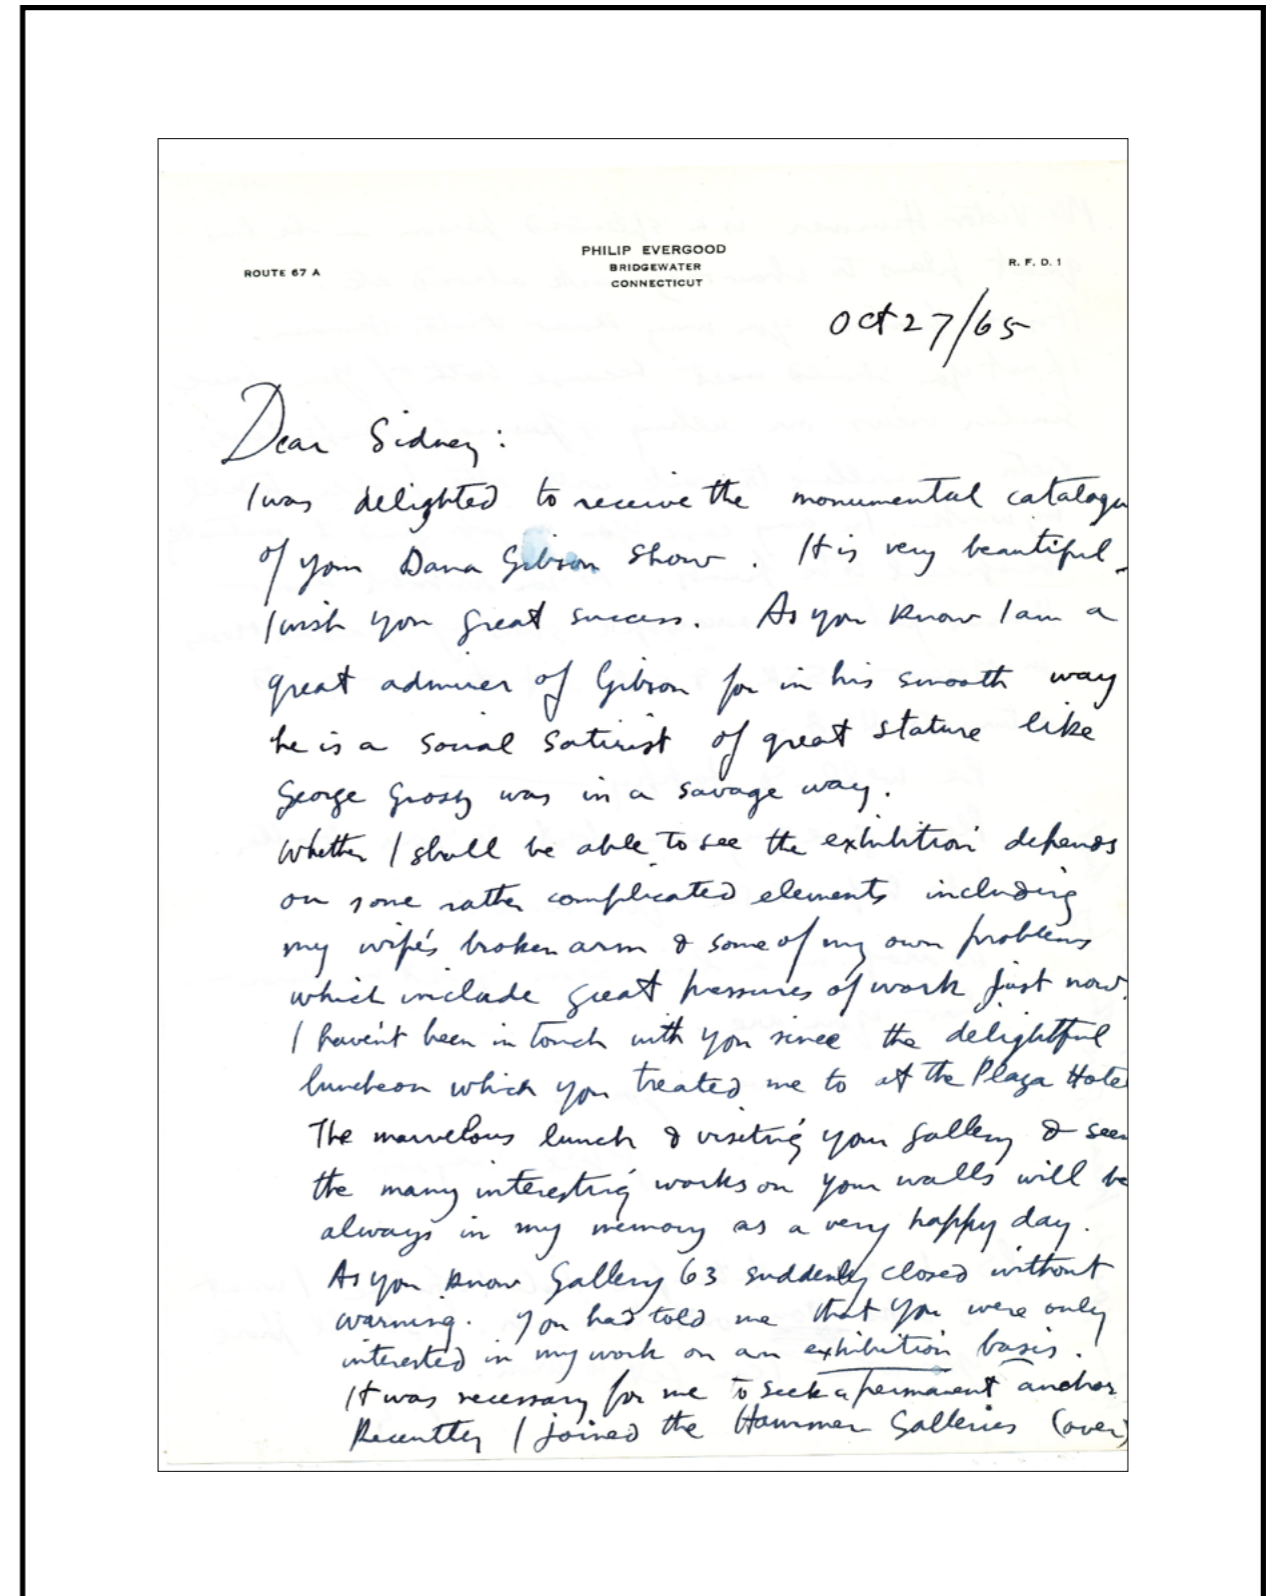 PHILIP EVERGOOD
ROUTE 67 A
BRIDGEWATER
R. F. D. 1
CONNECTICUT
Oct 27/65
Dear Sidney:
I was delighted to receive the monumental catalogu
of your Dana Gibson show. It is very beautiful.
I wish you great success. As you know I am a
great admirer of Gibson for in his smooth way
he is a social satirist of great stature like
George Grosz was in a savage way.
Whether I shall be able to see the exhibition depends
on some rather complicated elements including
my wife's broken arm & some of my own problems
which include great pressures of work just now.
I haven't been in touch with you since the delightful
luncheon which you treated me to at the Plaza Hote
The marvelous lunch & visiting your gallery & seein
the many interesting works on your walls will be
always in my memory as a very happy day.
As you know Gallery 63 suddenly closed without
warning. You had told me that you were only
interested in my work on an exhibition basis.
It was necessary for me to seek a permanent anchor
Recently I joined the Hammer Galleries (over)